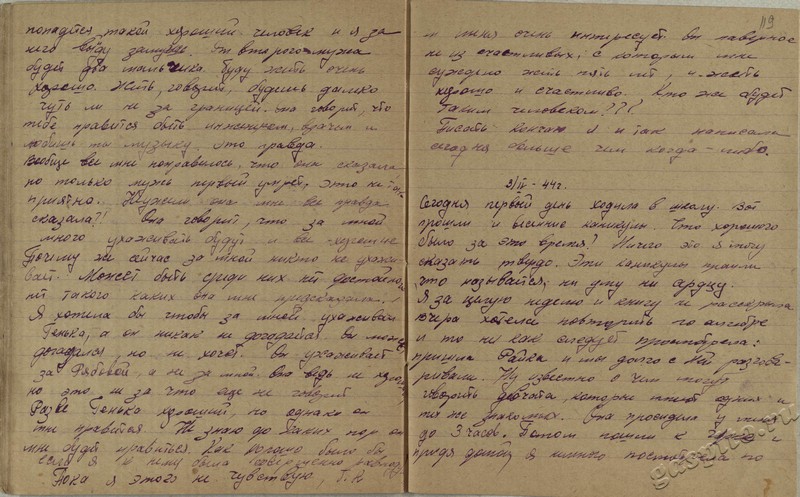 попадётся такой хороший человек и я за
него выйду замуж. От второго мужа
будет два мальчика, буду жить очень
хорошо. Жить, говорит, будешь далеко
чуть ли не за границей. Она говорит, что
тебе нравится быть инженером, врачом и
любишь ты музыку. Это правда.
Вообще всё мне понравилось, что она сказала
но только муж первый умрёт, это не
приятно. Неужели она мне всё правда
сказала?! Она говорит, что за мной
много ухаживать будут и все хорошие
Почему же сейчас за мной никто не ухажи
вает. Может быть среди них нет
нет такого каких она мне предсказала.
Я хотела бы чтобы за мной ухаживал
Генька, а он никак не догадается. Он может
догадался, но не хочет. Он ухаживает
за Рябовой, а не за мной. Она ведь не
но это ни за что еще не говорит
Разве Генька хороший, но однако он
мне нравится. Не знаю до каких пор он
мне будет нравиться. Как хорошо было бы
если я к нему была совершенно
Пока я этого не чувствую, Т.К
119
и меня очень интересует. Он наверное
не из счастливых, с которым мне
суждено жить пять лет, и жить
хорошо и счастливо. Кто же будет
таким человеком???
Писать кончаю я и так написала
сегодня больше чем когда-либо.
3/IV-44г.
Сегодня первый день ходила в школу. Вот
прошли и весенние каникулы. Что хорошего
было за это время? Ничего это я могу
сказать твёрдо. Эти каникулы прошли
что называется, ни уму ни сердцу.
Я за целую неделю и книгу не раскрыла
Вчера хотела повторить по алгебре
и то ни как следует просмотрела:
пришла Райка и мы долго с ней разгова-
ривали. Ну известно о чем могут
говорить девчата, которые
тех же знакомых. Она просидела у меня
до 3 часов. Потом пошли к
придя домой я